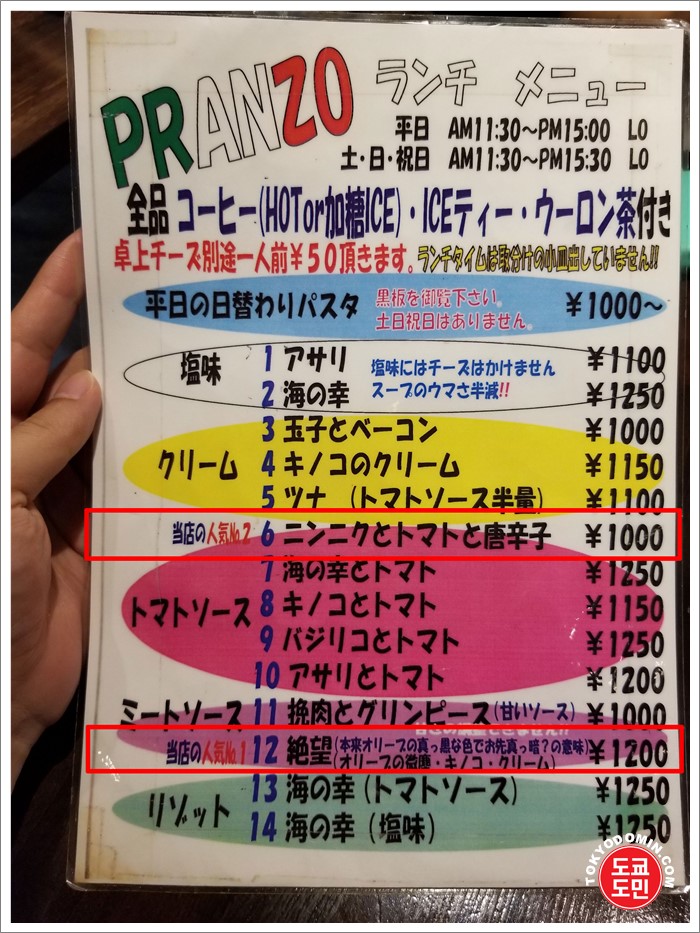 PRANZO ランチ メニュー
平日 AM11:30～PM15:00 LO
土・日・祝日 AM11:30～PM15:30 LO
全品 コーヒー(HOTor加糖ICE)・ICEティー・ウーロン茶付き
卓上チーズ別途一人前￥５０頂きます。ランチタイムは取分けの小皿出していません!!
平日の日替わりパスタ 黒板を御覧下さい。 ￥1000～
土日祝日はありません。
塩味 1 アサリ 塩味にはチーズはかけません ￥1100
2 海の幸 スープのウマさ半減!! ￥1250
3 玉子とベーコン ￥1000
クリーム 4 キノコのクリーム ￥1150
5 ツナ (トマトソース半量) ￥1100
当店の人気No.2 6 ニンニクとトマトと唐辛子 ￥1000
7 海の幸とトマト ￥1250
トマトソース 8 キノコとトマト ￥1150
9 バジリコとトマト ￥1250
10 アサリとトマト ￥1200
ミートソース 11 挽肉とグリンピース(甘いソース) ￥1000
当店の人気No.1 12 絶望(本来オリーブの真っ黒な色でお先真っ暗？の意味) ￥1200
キノコ・クリーム)
13 海の幸 (トマトソース) ￥1250
リゾット
14 海の幸 (塩味) ￥1250
TOKYODOMIN.COM
도쿄
도민